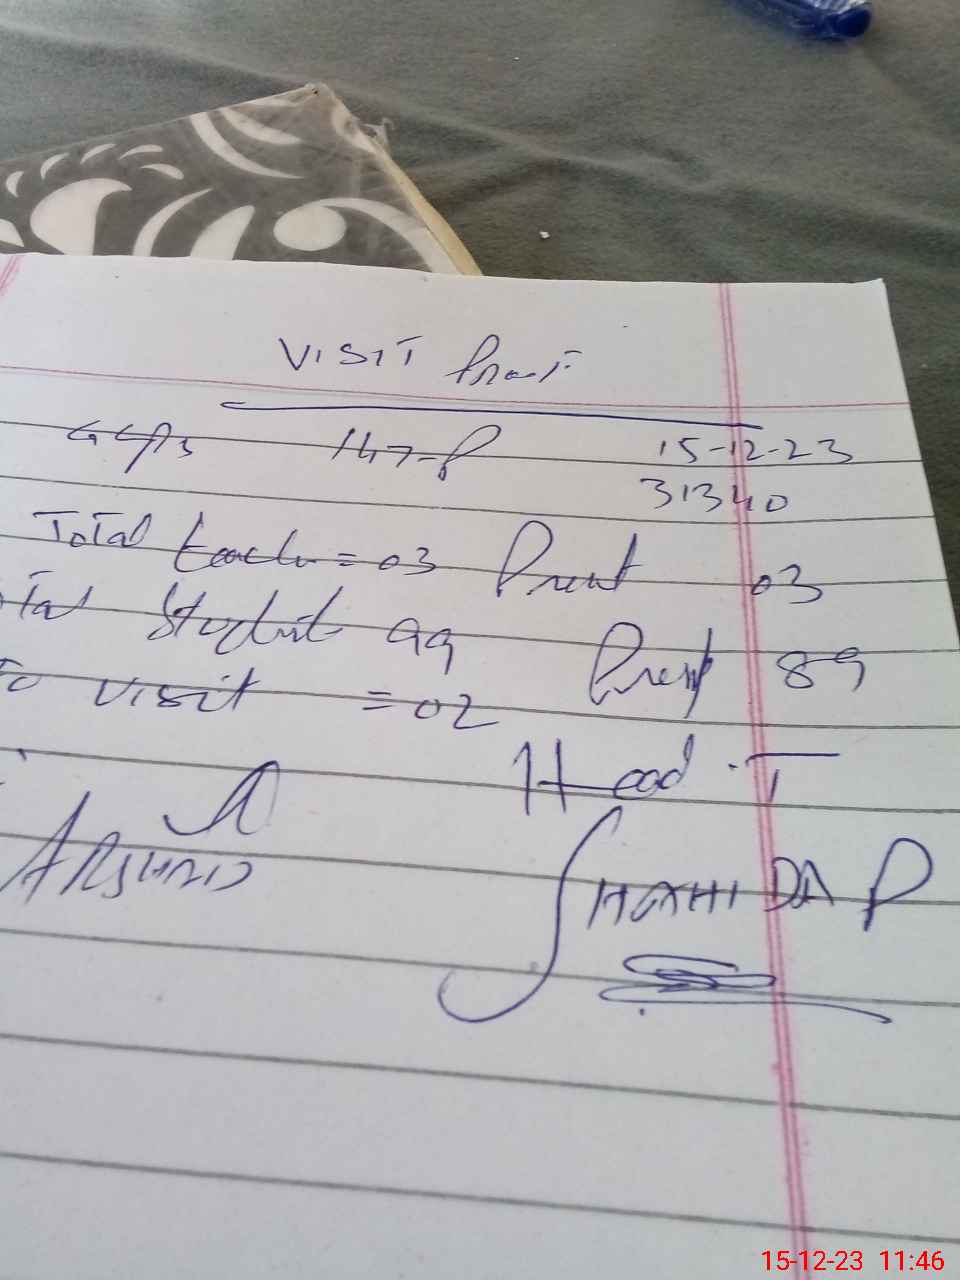 VISIT Proof
GGPS 147-P 15-12-23
31340
Total teach = 03 Present 03
Total Student 99 Present 89
To visit = 02
Head.T
ARSHAD SHAHIDA P
15-12-23 11:46